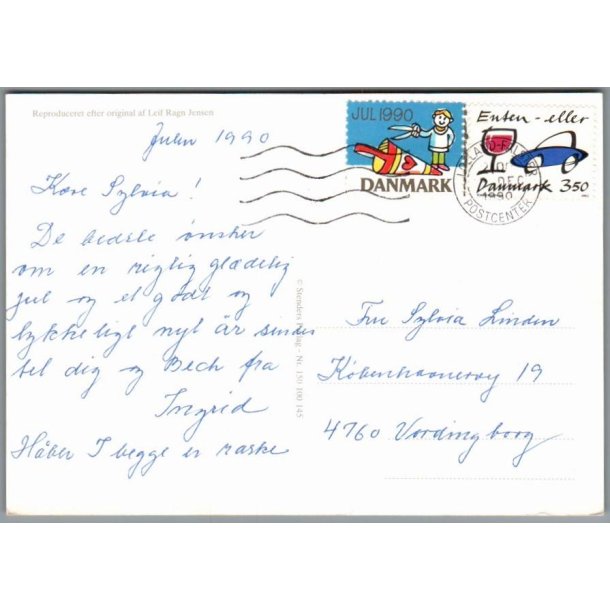 Reproduceret efter original af Leif Ragn Jensen
Julen 1990
Kære Sylvia!
De bedste ønsker
om en rigtig glædelig
jul og et godt og
lykkeligt nyt år sendes
til dig og Bech fra
Ingrid
Håber I begge er raske
© Stenders Forlag - Nr. 150 100 145
JUL 1990
DANMARK
Enten - eller
Danmark 350
LOLLAND-FALSTER
DEC
1990
POSTCENTER
Fru Sylvia Linden
Københavnsvej 19
4760 Vordingborg